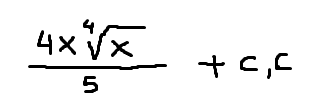 \frac{4x\sqrt[4]{x}}{5} + c, c